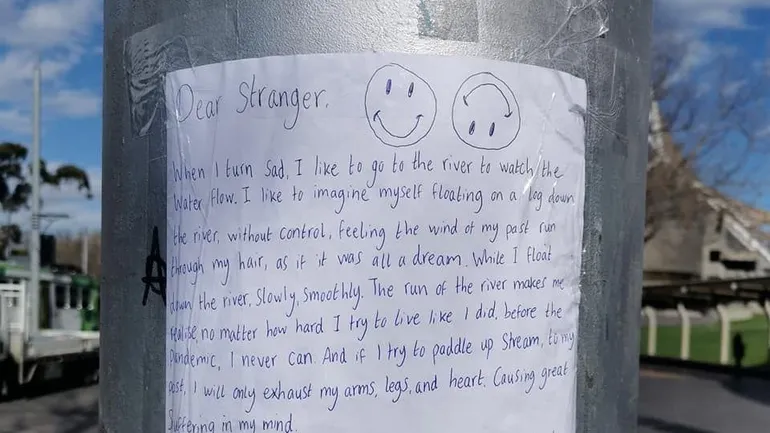 Dear Stranger,
When I turn sad, I like to go to the river to watch the
Water flow. I like to imagine myself floating on a log down
the river, without control, feeling the wind of my past run
through my hair, as if it was all a dream. While I float
down the river, slowly, smoothly. The run of the river makes me
realise, no matter how hard I try to live like I did, before the
Pandemic, I never can. And if I try to paddle up stream, to my
past, I will only exhaust my arms, legs, and heart. Causing great
Suffering in my mind.